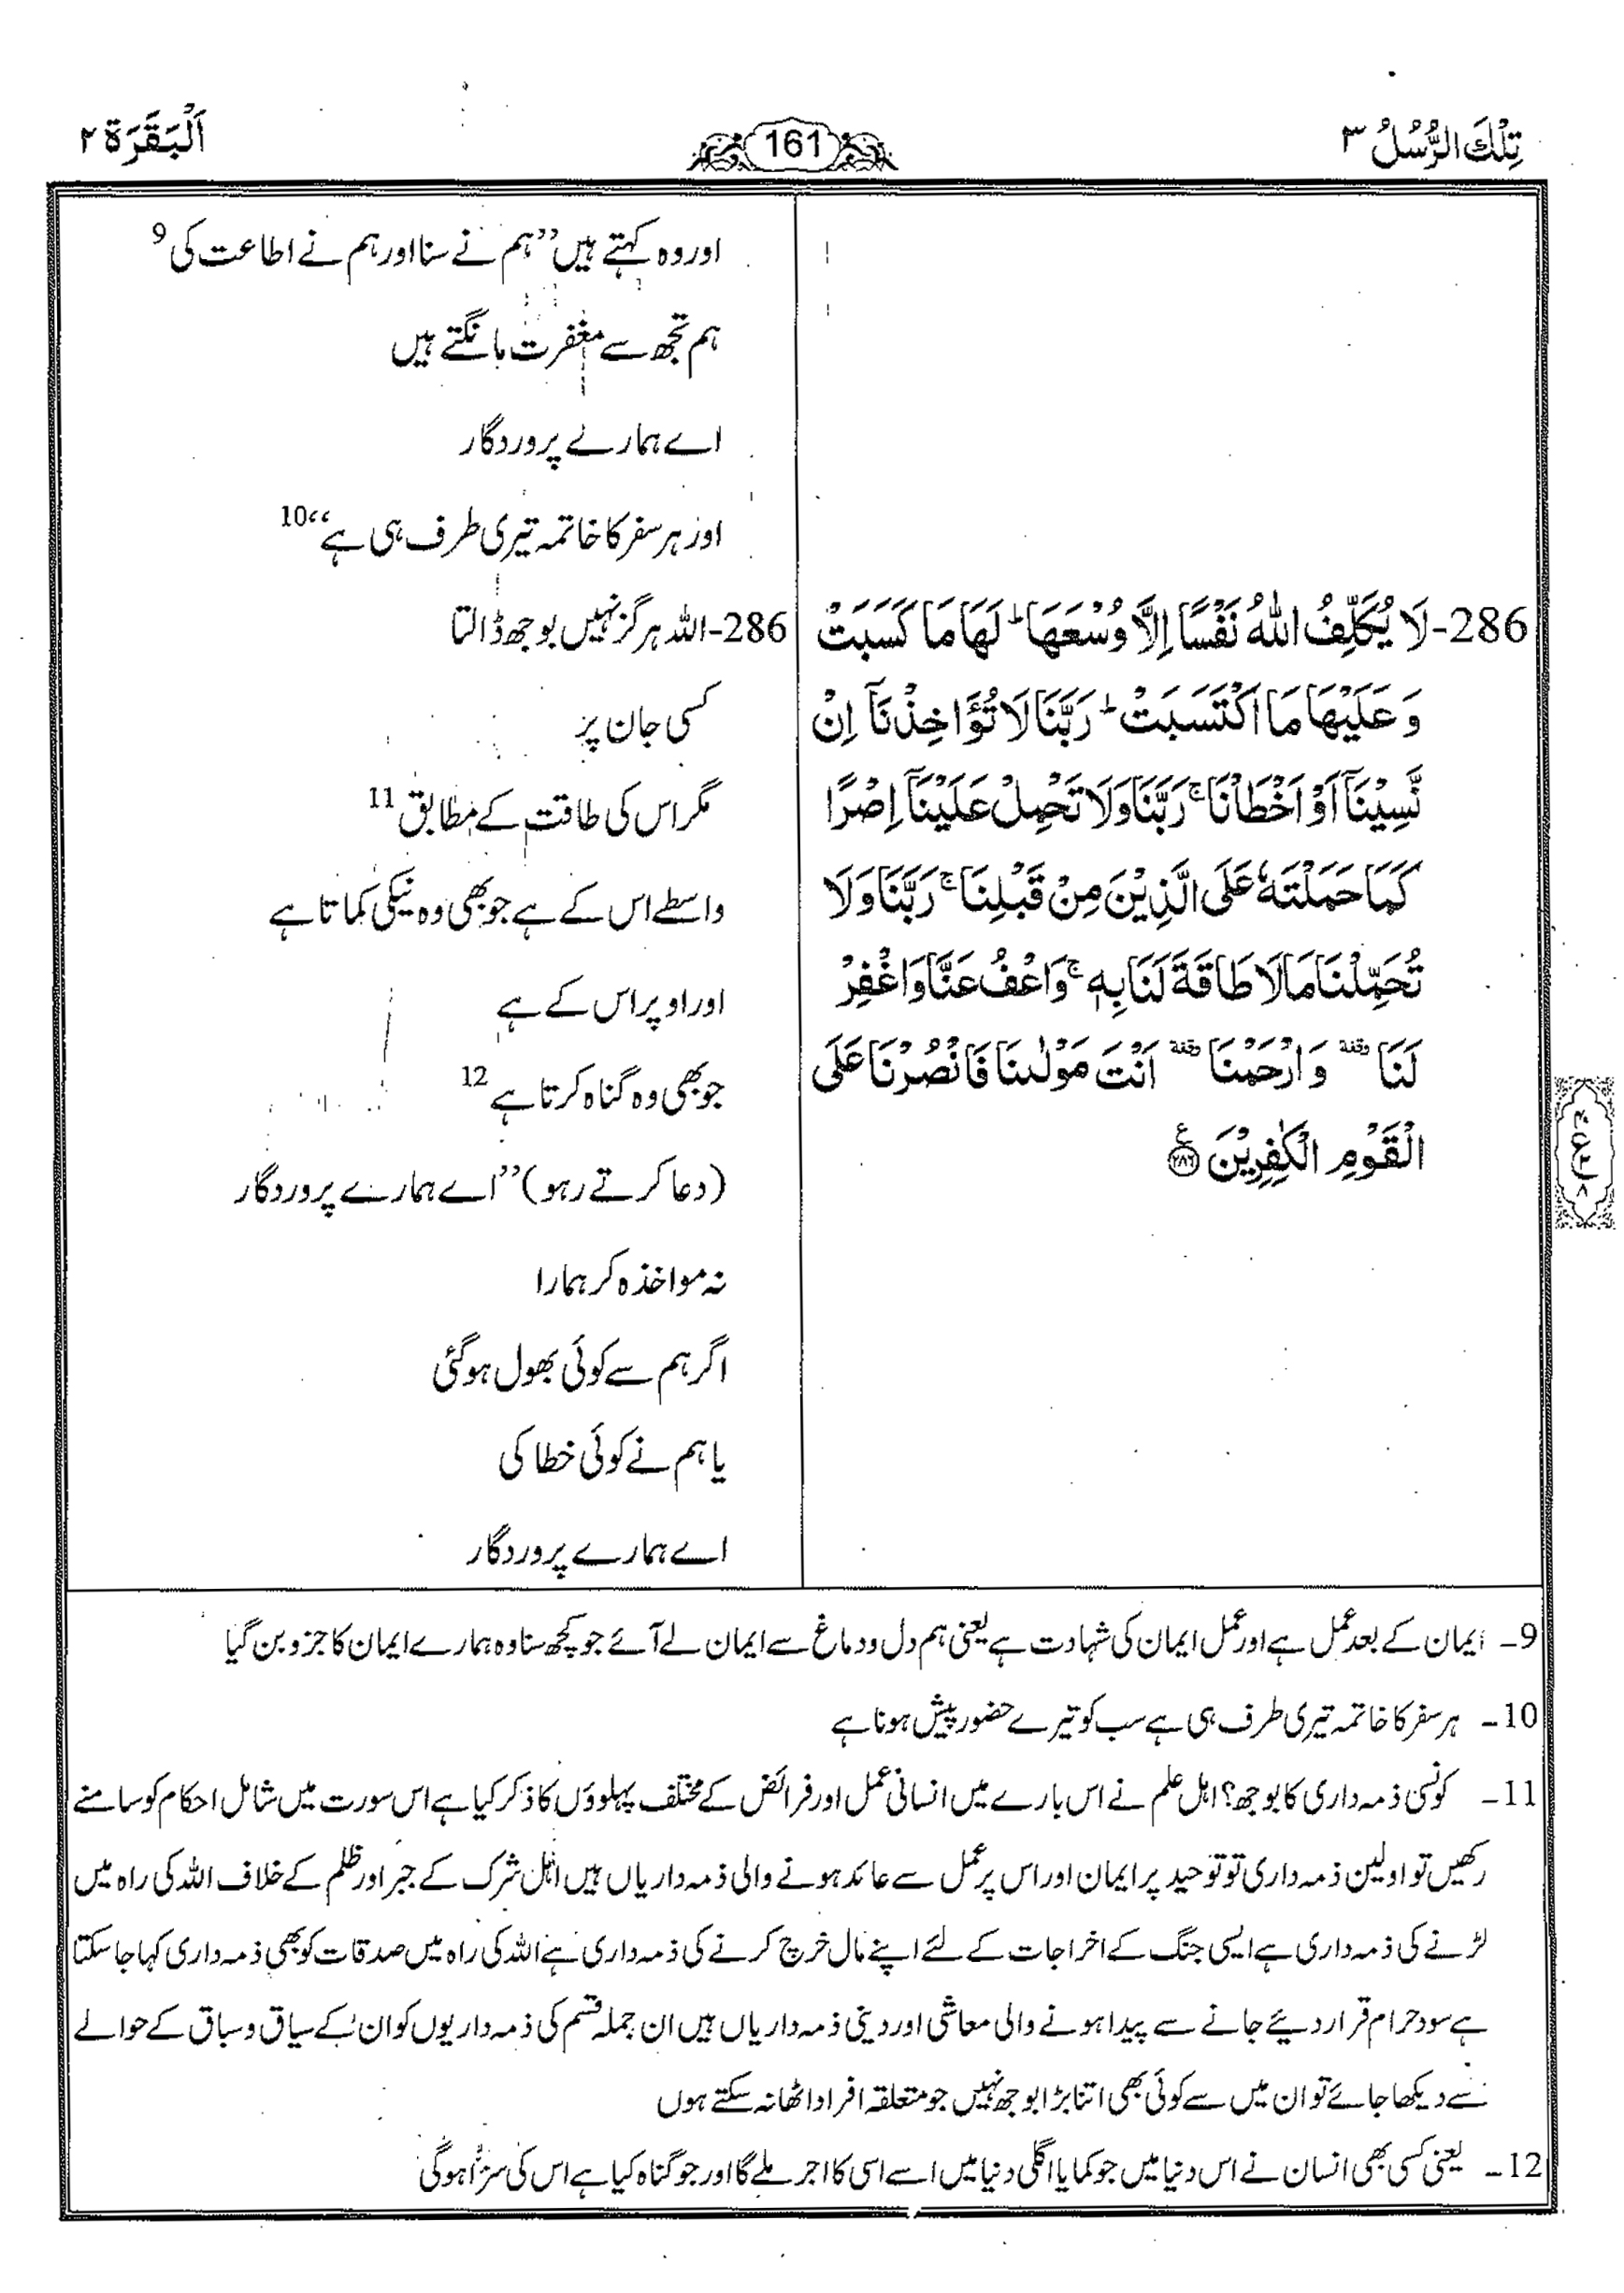 تِلْكَ الرُّسُلُ ٣
161
اَلْبَقَرَة ٢
286-لَا يُكَلِّفُ اللّٰهُ نَفْسًا اِلَّا وُسْعَهَا ؕ لَهَا مَا كَسَبَتْ
وَ عَلَيْهَا مَا اكْتَسَبَتْ ؕ رَبَّنَا لَا تُؤَاخِذْنَاۤ اِنْ
نَّسِيْنَاۤ اَوْ اَخْطَاْنَا ۚ رَبَّنَا وَلَا تَحْمِلْ عَلَيْنَاۤ اِصْرًا
كَمَا حَمَلْتَهٗ عَلَى الَّذِيْنَ مِنْ قَبْلِنَا ۚ رَبَّنَا وَلَا
تُحَمِّلْنَا مَا لَا طَاقَةَ لَنَا بِهٖ ۚ وَاعْفُ عَنَّا وَاغْفِرْ
لَنَا وقفة وَارْحَمْنَا وقفة اَنْتَ مَوْلٰىنَا فَانْصُرْنَا عَلَى
الْقَوْمِ الْكٰفِرِيْنَ ع ٢٨٦
اور وہ کہتے ہیں ’’ہم نے سنا اور ہم نے اطاعت کی 9
ہم تجھ سے مغفرت مانگتے ہیں
اے ہمارے پروردگار
اور ہر سفر کا خاتمہ تیری طرف ہی ہے‘‘ 10
286-اللہ ہرگز نہیں بوجھ ڈالتا
کسی جان پر
مگر اس کی طاقت کے مطابق 11
واسطے اس کے ہے جو بھی وہ نیکی کماتا ہے
اور اوپر اس کے ہے
جو بھی وہ گناہ کرتا ہے 12
(دعا کرتے رہو) ’’اے ہمارے پروردگار
نہ مواخذہ کر ہمارا
اگر ہم سے کوئی بھول ہوگئی
یا ہم نے کوئی خطا کی
اے ہمارے پروردگار
9- ایمان کے بعد عمل ہے اور عمل ایمان کی شہادت ہے یعنی ہم دل و دماغ سے ایمان لے آئے جو کچھ سنا وہ ہمارے ایمان کا جزو بن گیا
10- ہر سفر کا خاتمہ تیری طرف ہی ہے سب کو تیرے حضور پیش ہونا ہے
11- کونسی ذمہ داری کا بوجھ؟ اہل علم نے اس بارے میں انسانی عمل اور فرائض کے مختلف پہلوؤں کا ذکر کیا ہے اس سورت میں شامل احکام کو سامنے
رکھیں تو اولین ذمہ داری تو توحید پر ایمان اور اس پر عمل سے عائد ہونے والی ذمہ داریاں ہیں اہل شرک کے جبر اور ظلم کے خلاف اللہ کی راہ میں
لڑنے کی ذمہ داری ہے ایسی جنگ کے اخراجات کے لئے اپنے مال خرچ کرنے کی ذمہ داری ہے اللہ کی راہ میں صدقات کو بھی ذمہ داری کہا جا سکتا
ہے سود حرام قرار دیئے جانے سے پیدا ہونے والی معاشی اور دینی ذمہ داریاں ہیں ان جملہ قسم کی ذمہ داریوں کو ان کے سیاق و سباق کے حوالے
سے دیکھا جائے تو ان میں سے کوئی بھی اتنا بڑا بوجھ نہیں جو متعلقہ افراد اٹھا نہ سکتے ہوں
12- یعنی کسی بھی انسان نے اس دنیا میں جو کمایا اگلی دنیا میں اسے اسی کا اجر ملے گا اور جو گناہ کیا ہے اس کی سزا ہوگی